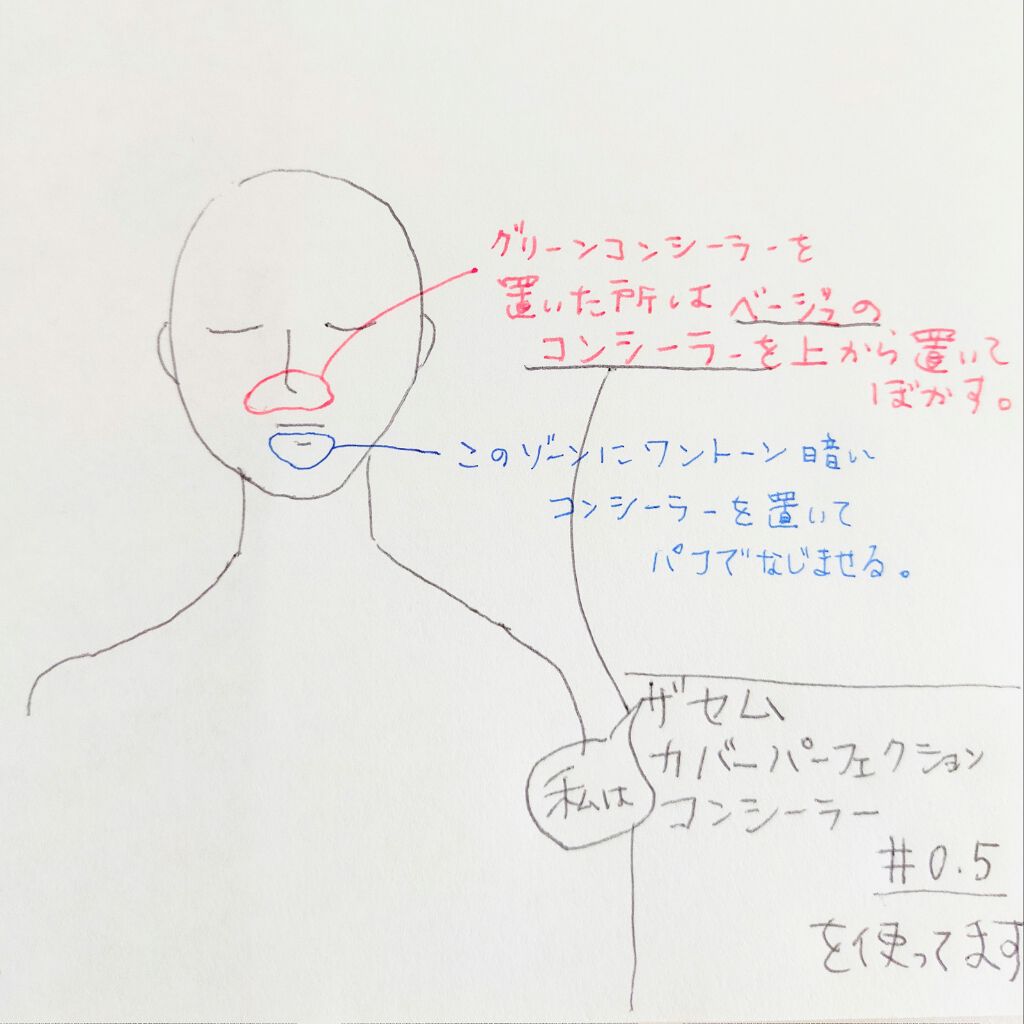 グリーンコンシーラーを
置いた所はベージュの
コンシーラーを上から置いて
ぼかす。
このゾーンにワントーン暗い
コンシーラーを置いて
パフでなじませる。
私は
ザセム
カバーパーフェクション
コンシーラー
#0.5
を使ってます